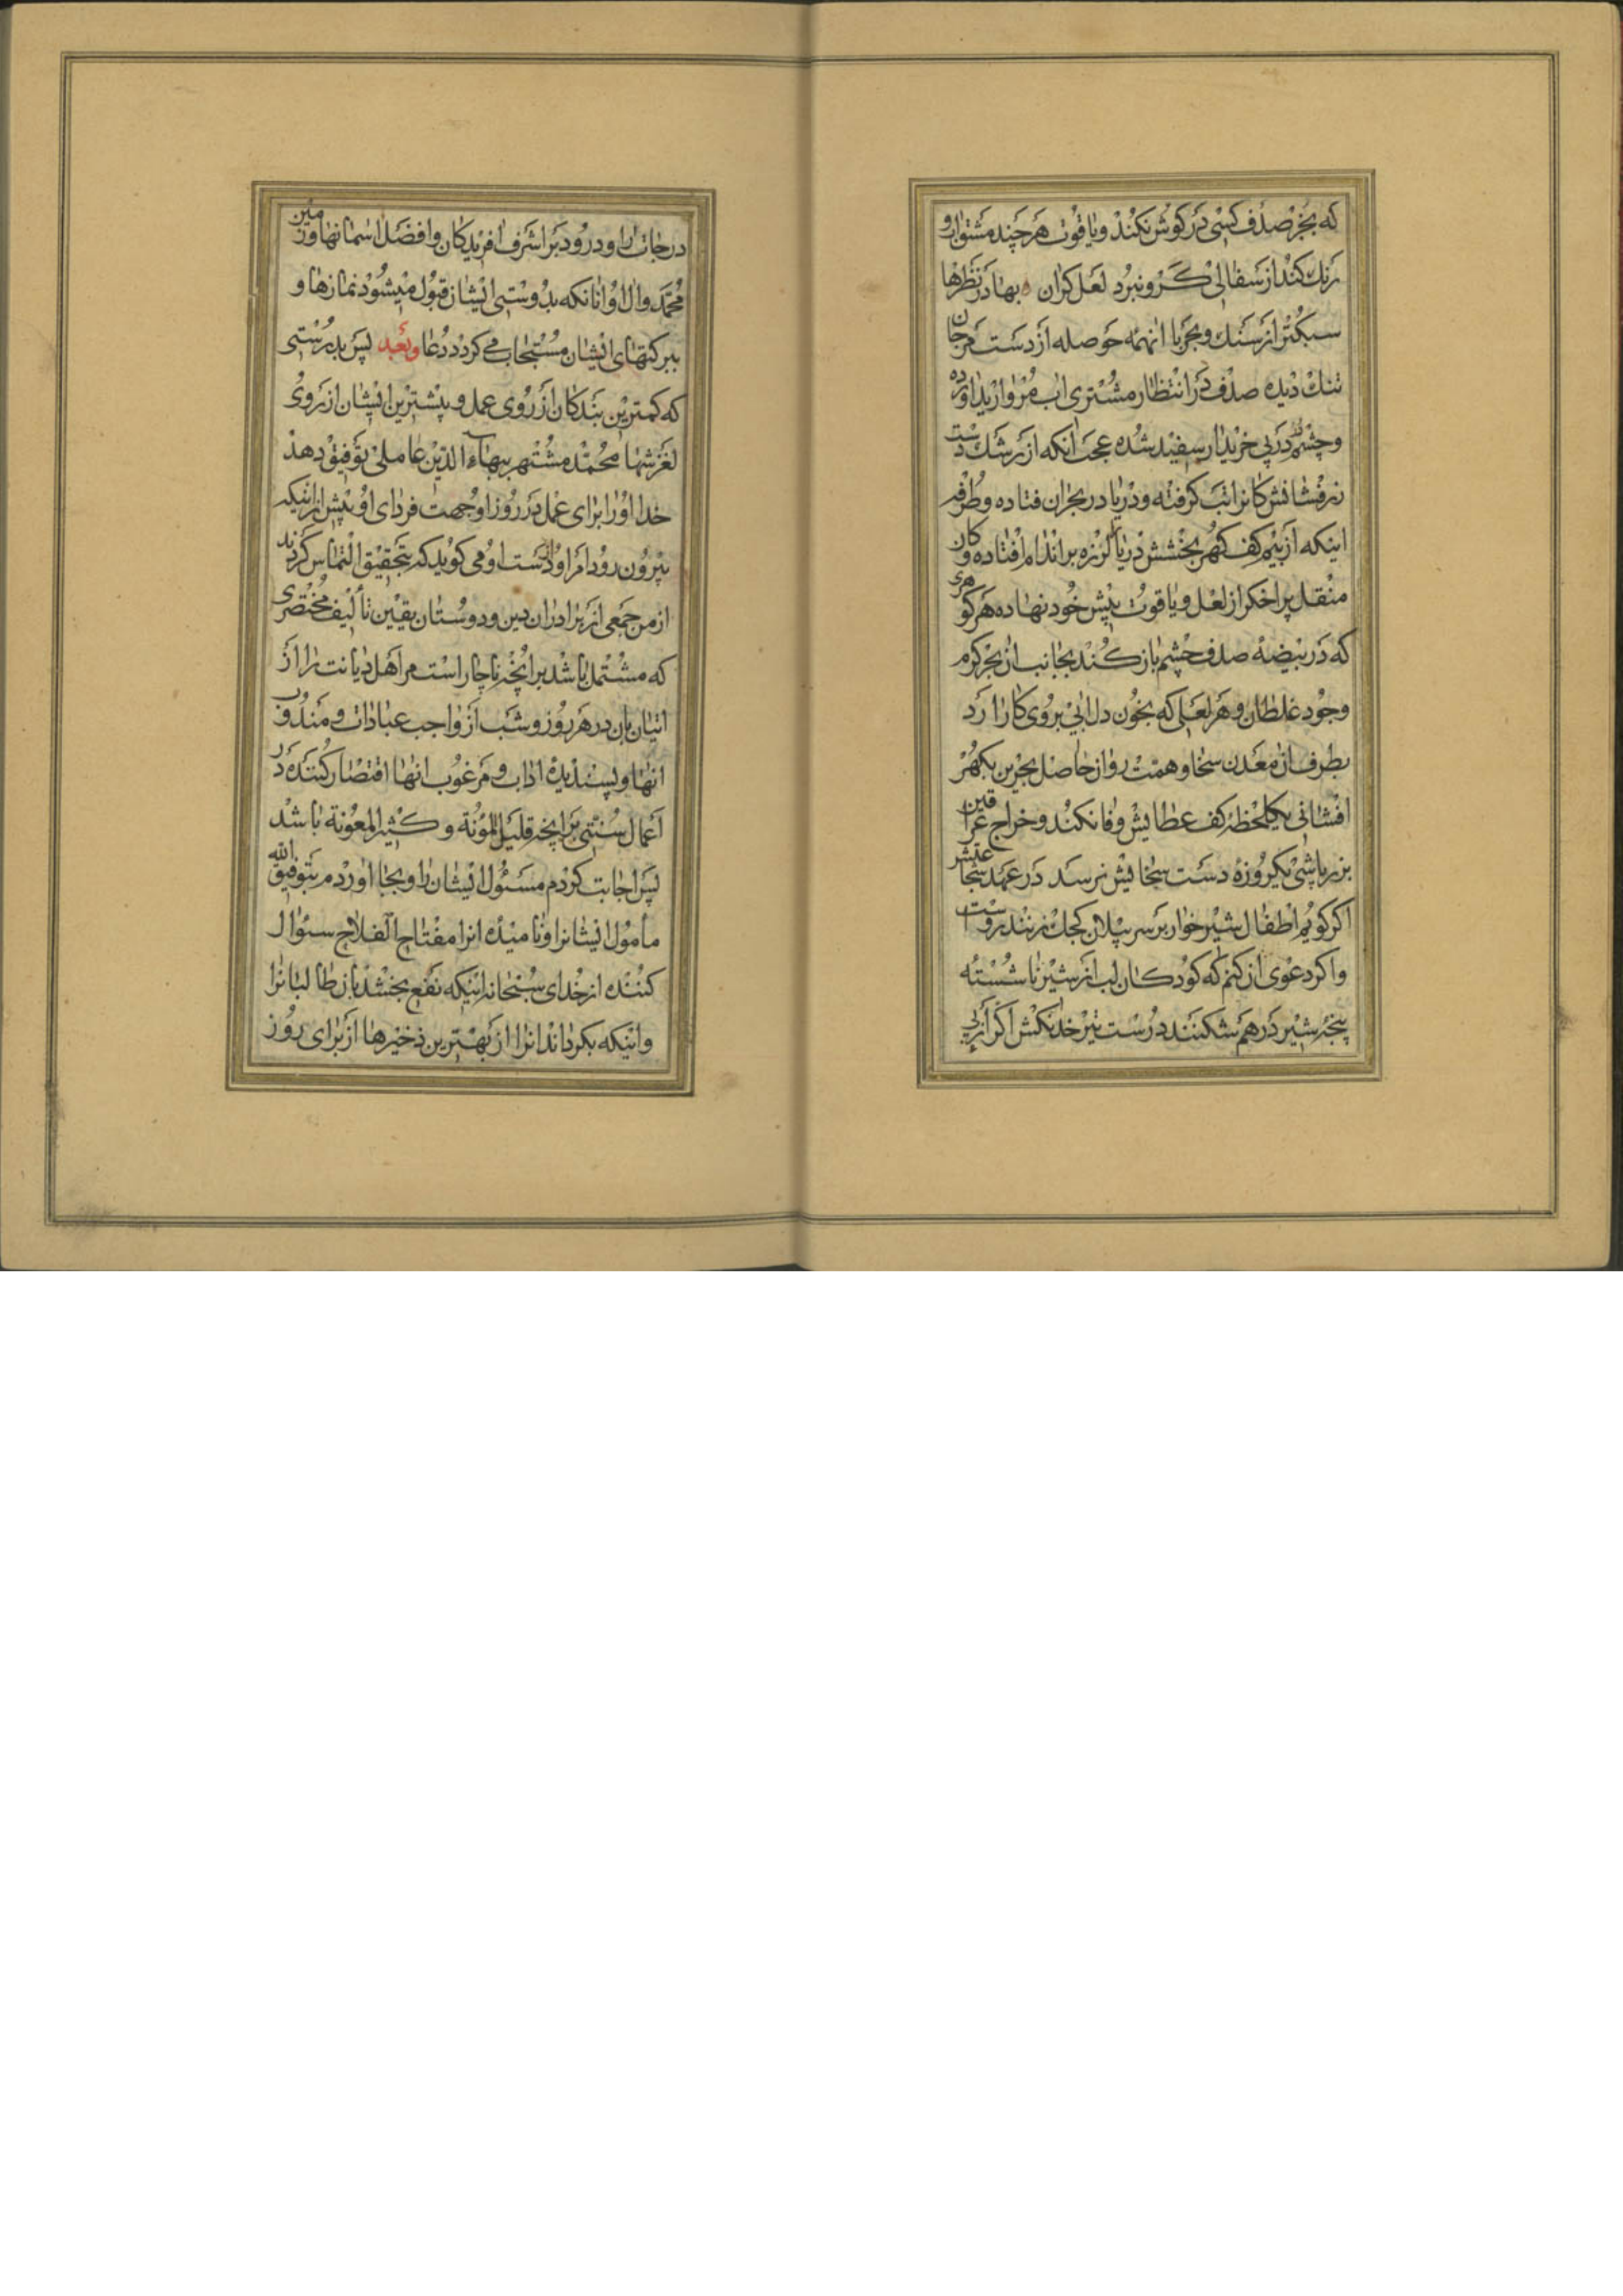 که بجز صدف کسی در کوش نکند و یاقوت هر چند مشتواری
رنک کند از سفالی کرو نبرد لعل کران بها در نظرها
سبکتر از سنک و بحر با انهمه حوصله از دست مرجان
تنک دیده صدف در انتظار مشتری اب مروارید اورده
و چشمش در پی خریدار سفید شده عجب انکه از رشک دست
زرفشانش کانرا تب کرفته و دریا در بحران فتاده و طرفه
اینکه از بیم کف کهر بخشش دریا را لرزه بر اندام افتاده و کان
منقل پر اخکر از لعل و یاقوت پیش خود نهاده هر کوهری
که در بیضه صدف چشم باز کند بجانب ان بحر کرم
وجود غلطان و هر لعلی که بخون دل ابی بروی کار ارد
بطرف ان معدن سخا و همت روان حاصل بحرین بکهر
افشانی یکلحظه کف عطایش وفا نکند و خراج عراقین
بزر پاشی یکروزه دست سخایش نرسد در عهد شجاعتش
اکر کویم اطفال شیر خوار بر سر پیلان کجک زنند رواست
و اکر دعوی ان کنم که کودکان لب از شیر ناشسته
پنجه شیر در هم شکنند درست تیر خدنکش اکر از پی
درجات را و درود بر اشرف افریدکان و افضل اسمانها و زمین
محمد وال او انانکه بدوستی ایشان قبول میشود نمازها و
ببرکتهای ایشان مستجاب می کردد دعا وبعد پس بدرستی
که کمترین بندکان از روی عمل و بیشترین ایشان از روی
لغزشها محمد مشتهر ببهاء الدین عاملی توفیق دهد
خدا او را برای عمل در روز او جهت فردای او پیش از اینکه
بیرون رود امر او از دست او می کوید که بتحقیق التماس کردند
از من جمعی از برادران دین و دوستان یقین تألیف مختصری
که مشتمل باشد بر انچه ناچار است مر اهل دیانت را از
اتیان بان در هر روز و شب از واجب عبادات و مندوب
انها و پسندیده اداب و مرغوب انها اقتصار کننده در
اعمال سنتی بر انچه قلیل المؤنة و کثیر المعونة باشد
پس اجابت کردم مسئول ایشان را و بجا اوردم بتوفیق الله
مأمول ایشانرا و نامیده انرا مفتاح الفلاح سئوال
کننده از خدای سبحانه اینکه نفع بخشد بان طالبانرا
و اینکه بکرداند انرا از بهترین ذخیرها از برای روز